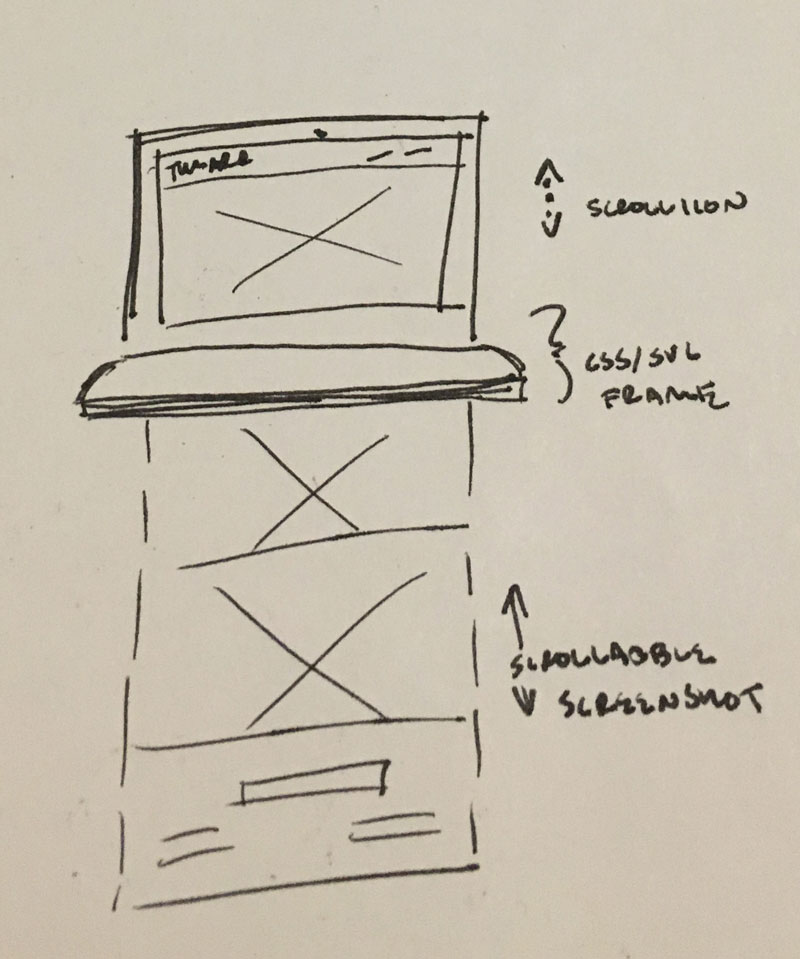 SCROLL ICON
CSS/SVG
FRAME
SCROLLABLE
SCREENSHOT